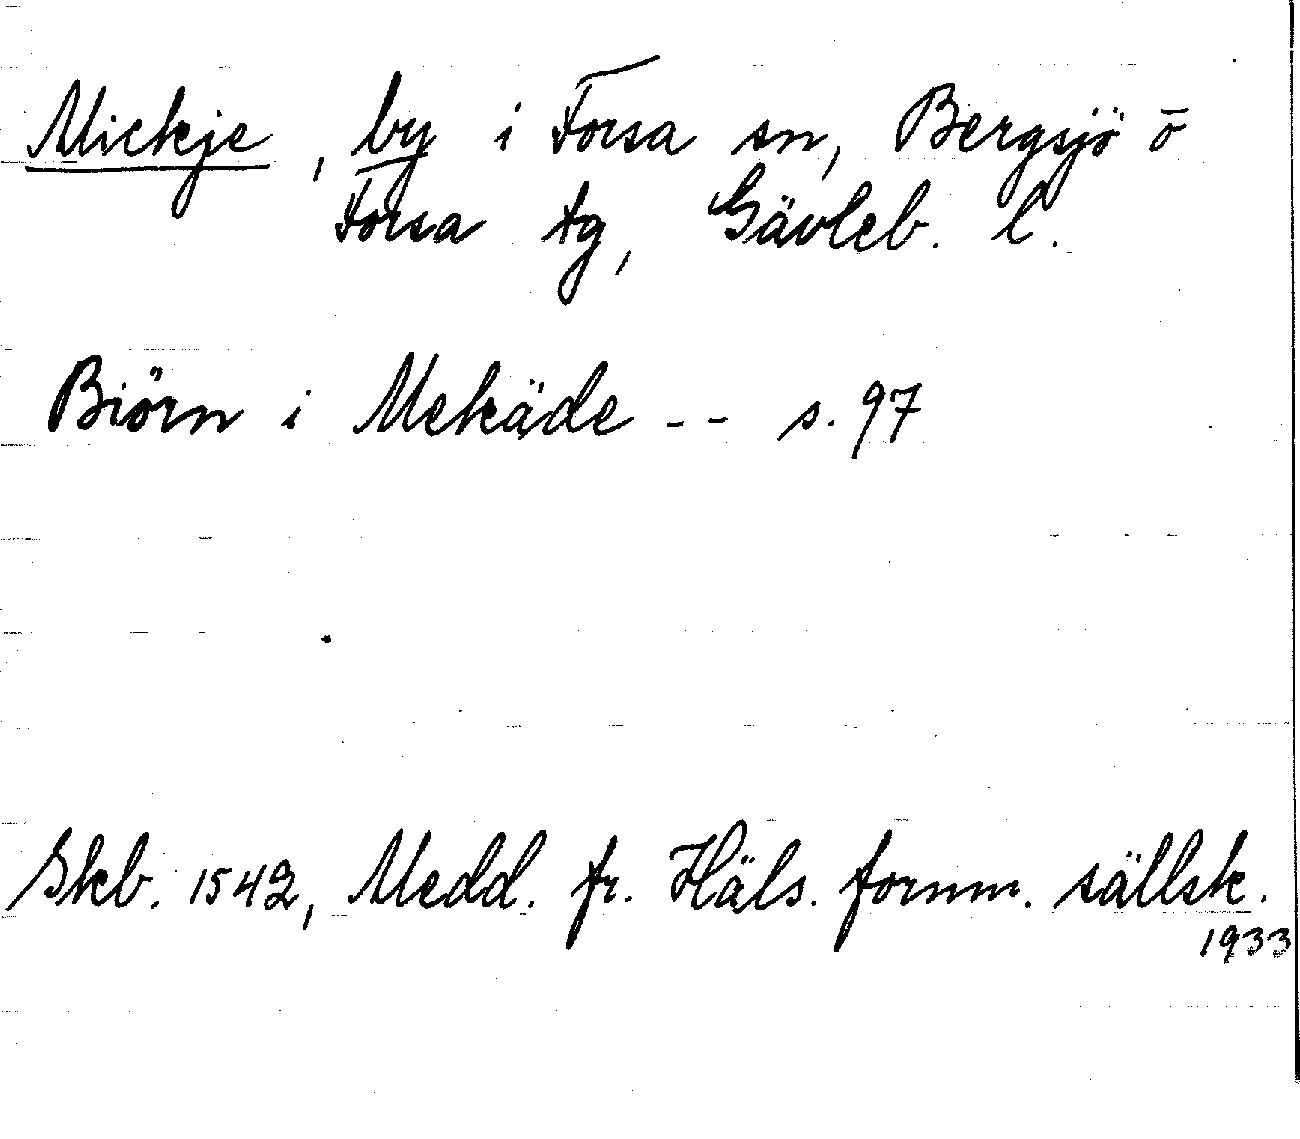 Mickje, by i Forsa sn, Bergsjö o
Forsa tg, Gävleb. l.
Biörn i Mekäde -- s. 97
Skb. 1542, Medd. fr. Häls. fornm. sällsk.
1933